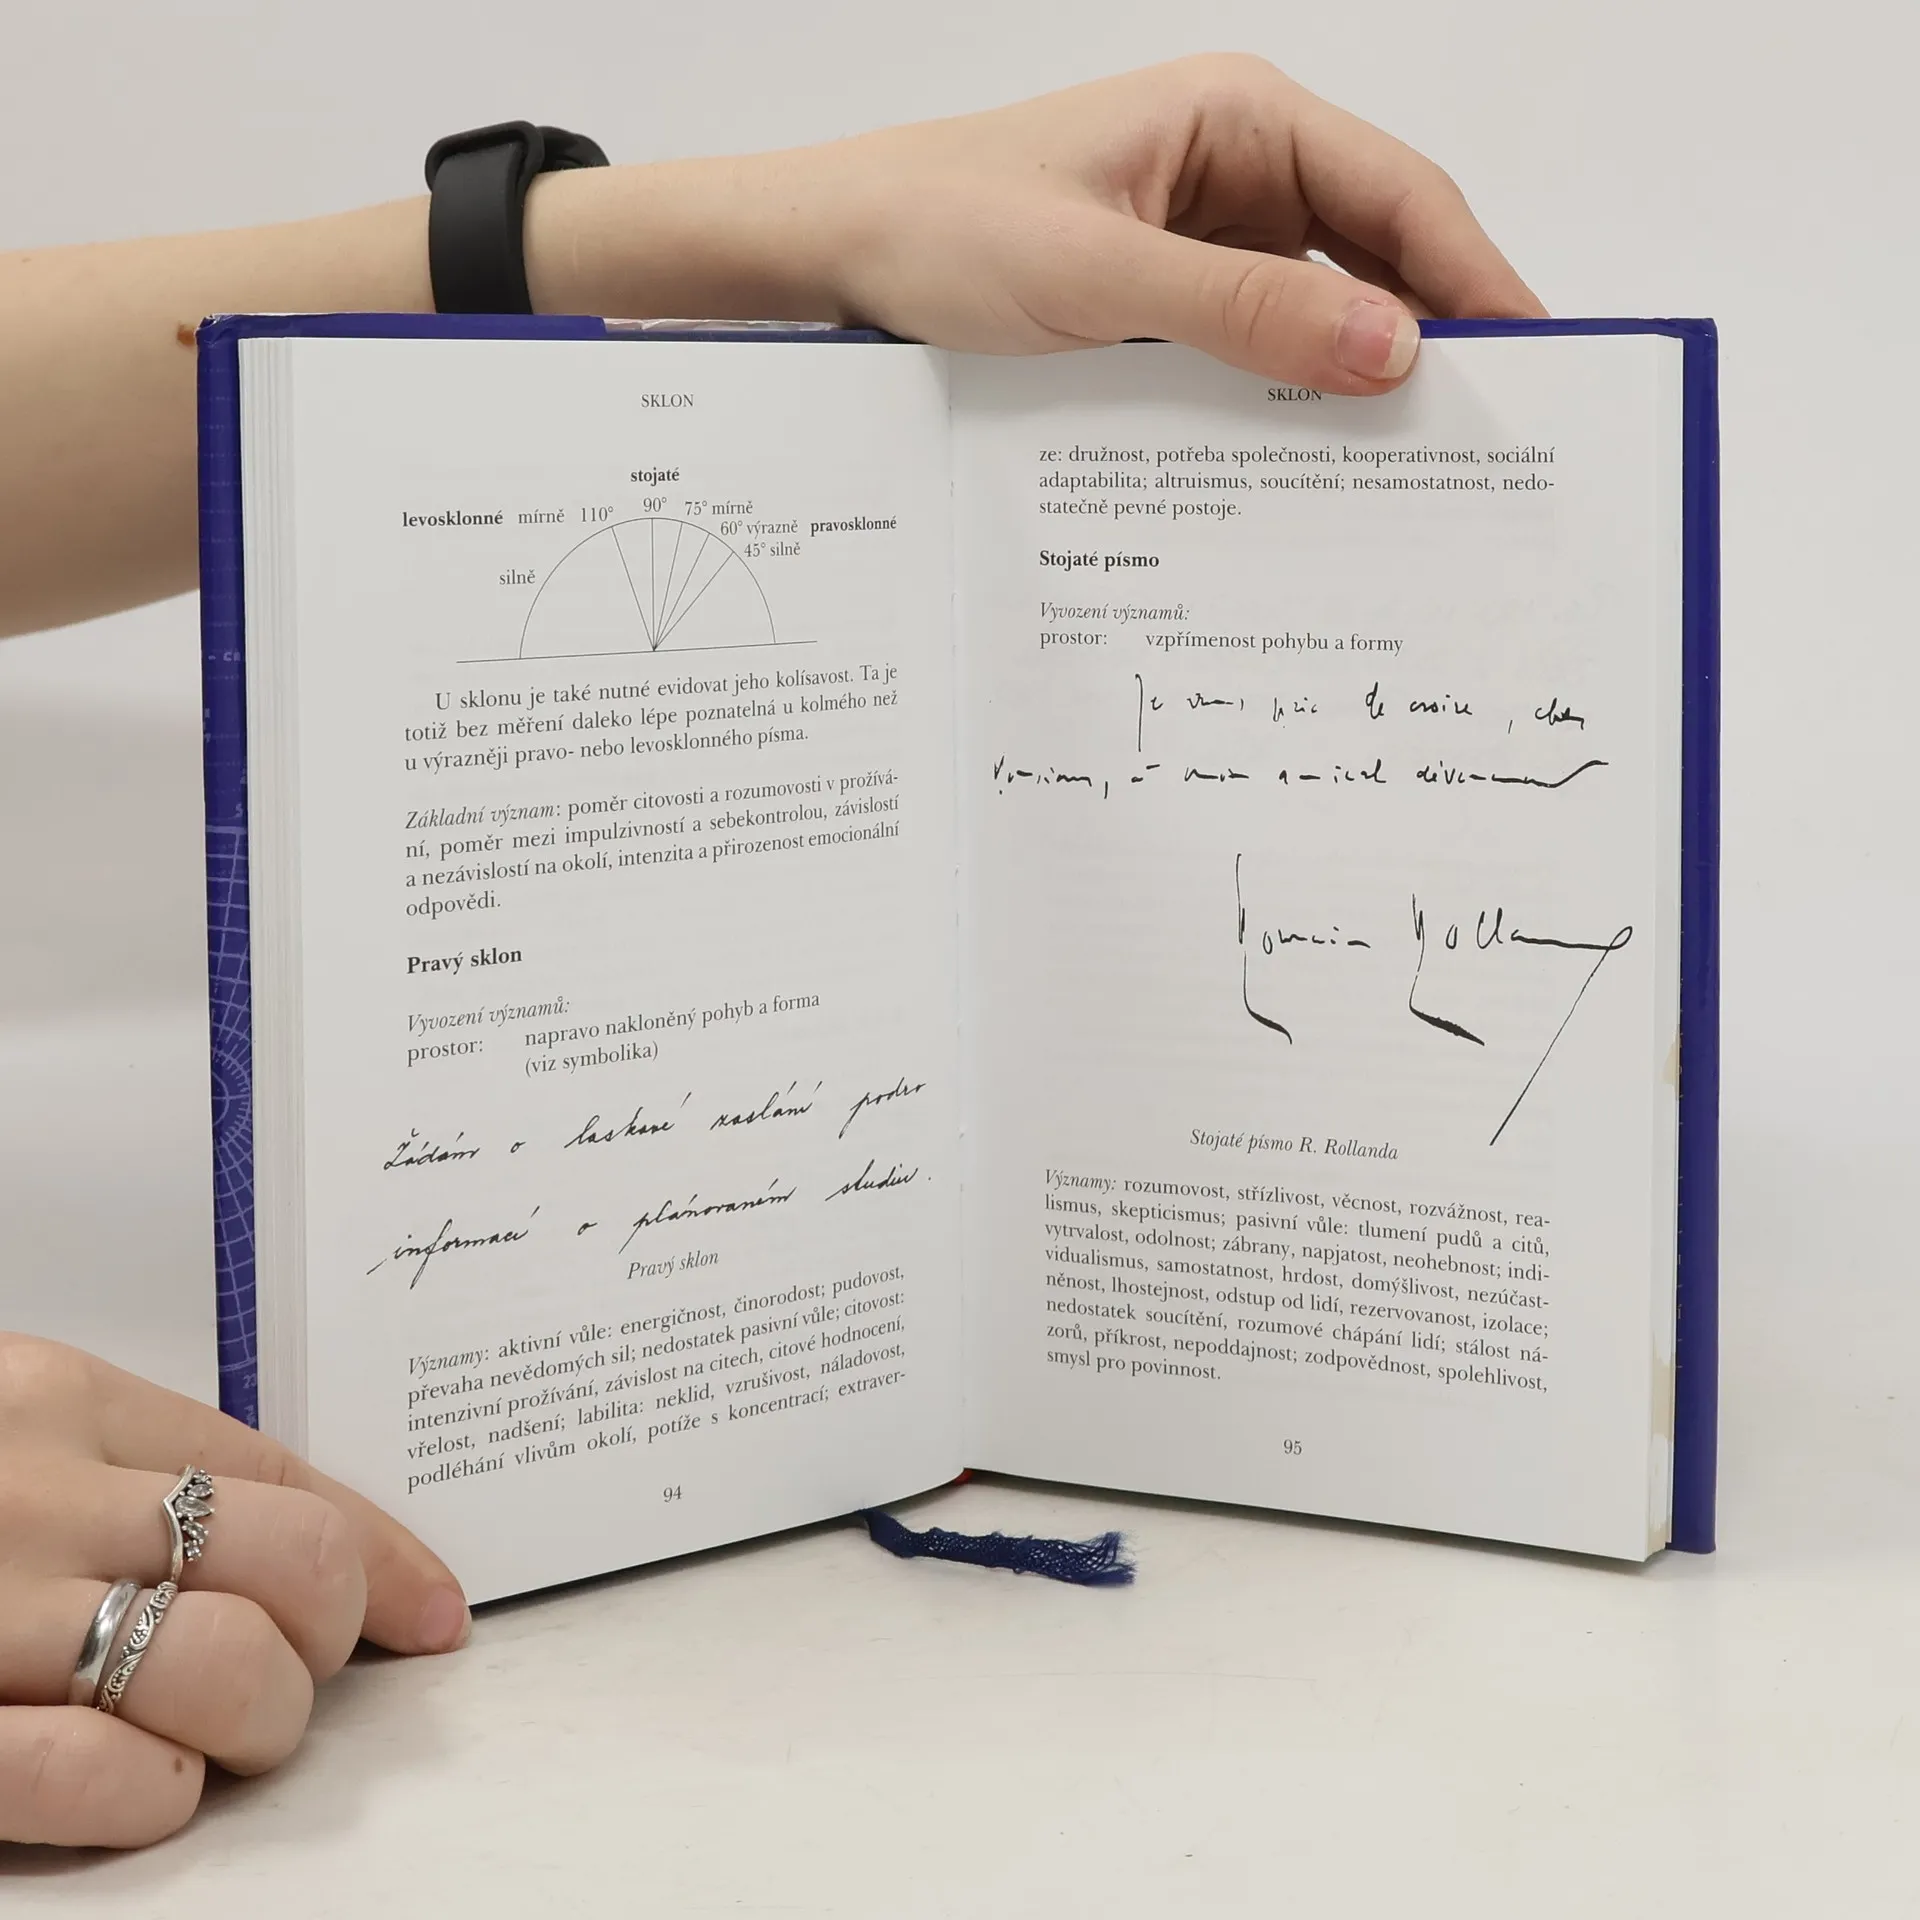 SKLON
stojaté
levosklonné mírně 110° 90° 75° mírně
60° výrazně pravosklonné
45° silně
silně
U sklonu je také nutné evidovat jeho kolísavost. Ta je
totiž bez měření daleko lépe poznatelná u kolmého než
u výrazněji pravo- nebo levosklonného písma.
Základní význam: poměr citovosti a rozumovosti v prožívá-
ní, poměr mezi impulzivností a sebekontrolou, závislostí
a nezávislostí na okolí, intenzita a přirozenost emocionální
odpovědi.
Pravý sklon
Vyvození významů:
prostor: napravo nakloněný pohyb a forma
(viz symbolika)
Žádám o laskavé zaslání podro
informací o plánovaném studiu.
Pravý sklon
Významy: aktivní vůle: energičnost, činorodost; pudovost,
převaha nevědomých sil; nedostatek pasivní vůle; citovost:
intenzivní prožívání, závislost na citech, citové hodnocení,
vřelost, nadšení; labilita: neklid, vzrušivost, náladovost,
podléhání vlivům okolí, potíže s koncentrací; extraver-
94
SKLON
ze: družnost, potřeba společnosti, kooperativnost, sociální
adaptabilita; altruismus, soucítění; nesamostatnost, nedo-
statečně pevné postoje.
Stojaté písmo
Vyvození významů:
prostor: vzpřímenost pohybu a formy
Je vous prie de croire, cher
à mon amical
Romain Rolland
Stojaté písmo R. Rollanda
Významy: rozumovost, střízlivost, věcnost, rozvážnost, rea-
lismus, skepticismus; pasivní vůle: tlumení pudů a citů,
vytrvalost, odolnost; zábrany, napjatost, neohebnost; indi-
vidualismus, samostatnost, hrdost, domýšlivost, nezúčast-
něnost, lhostejnost, odstup od lidí, rezervovanost, izolace;
nedostatek soucítění, rozumové chápání lidí; stálost ná-
zorů, příkrost, nepoddajnost; zodpovědnost, spolehlivost,
smysl pro povinnost.
95